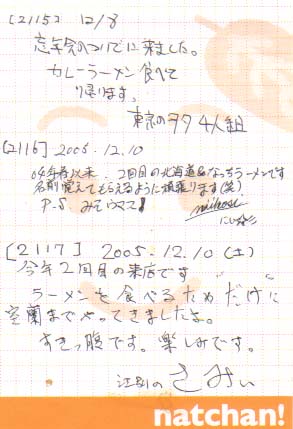 [2115] 12/8
忘年会のついでに来ました。
カレーラーメン食べて
帰ります。
東京のヲタ4人組
[2116] 2005.12.10
04年春以来、2回目の北海道&なっちラーメンです
名前覚えてもらえるように頑張ります(笑)
P.S. みそウマス!
[2117] 2005.12.10(土)
今年2回目の来店です
ラーメンを食べるためだけに
室蘭までやってきましたよ。
すきっ腹です。楽しみです。
江別のさみぃ
natchan!